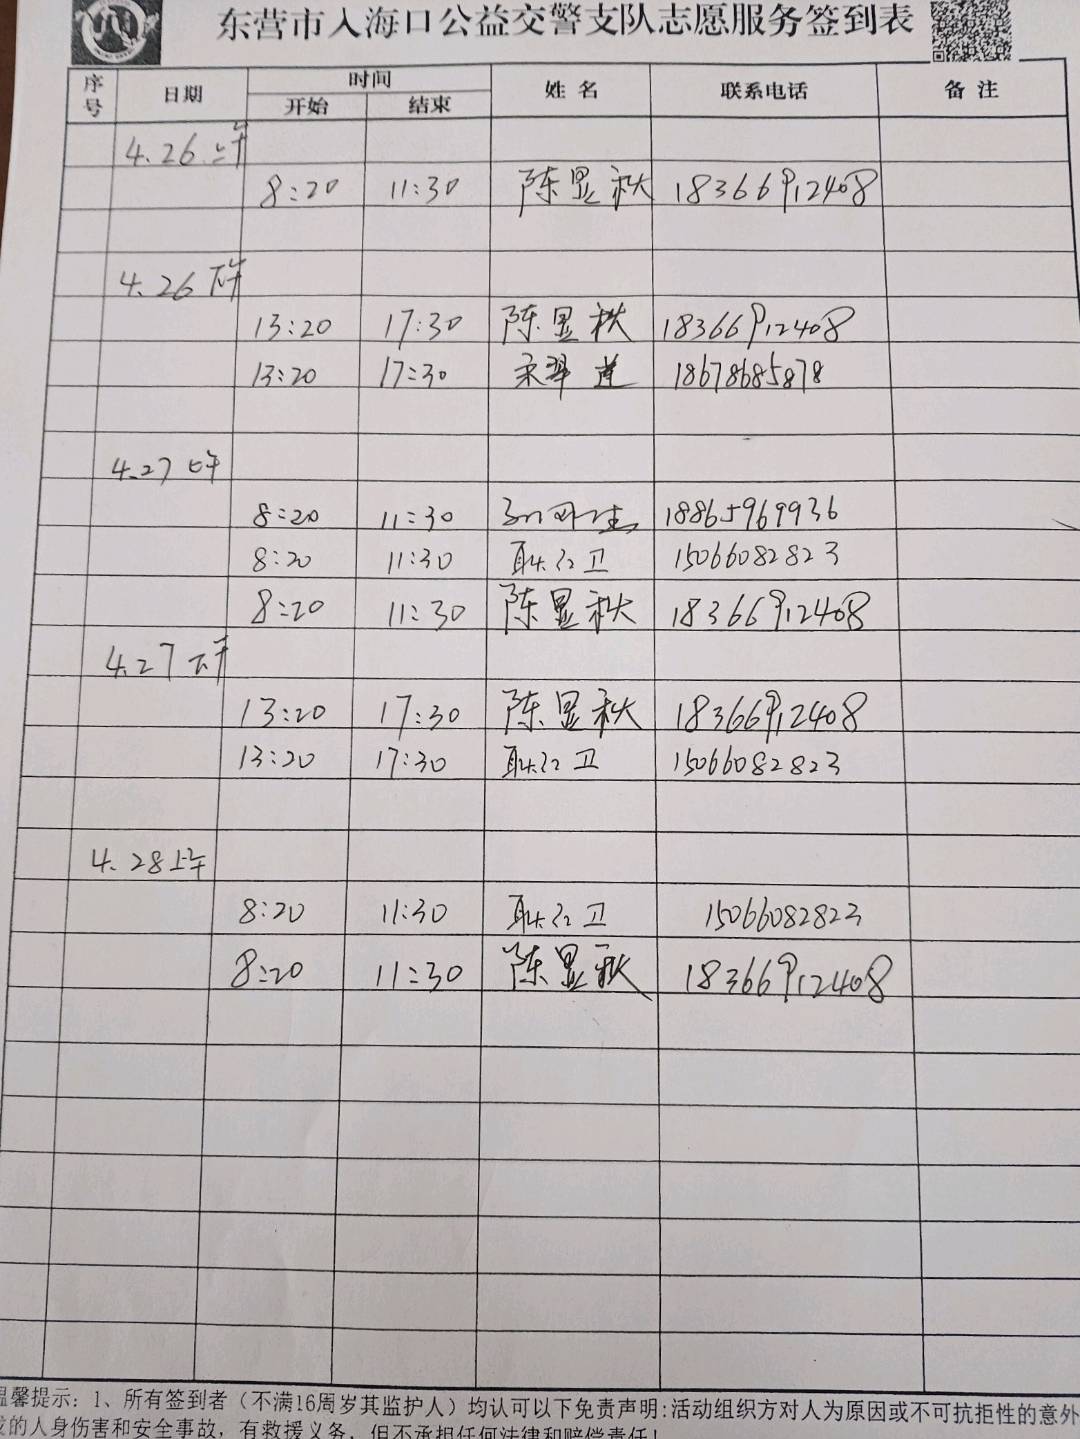 东营市入海口公益交警支队志愿服务签到表
序号 日期 时间 姓名 联系电话 备注
开始 结束
4.26上午
8:20 11:30 陈显秋 18366912408
4.26下午
13:20 17:30 陈显秋 18366912408
13:20 17:30 18678685878
4.27上午
8:20 11:30 18865969936
8:20 11:30 耿红卫 15066082823
8:20 11:30 陈显秋 18366912408
4.27下午
13:20 17:30 陈显秋 18366912408
13:20 17:30 耿红卫 15066082823
4.28上午
8:20 11:30 耿红卫 15066082823
8:20 11:30 陈显秋 18366912408
温馨提示：1、所有签到者（不满16周岁其监护人）均认可以下免责声明:活动组织方对人为原因或不可抗拒性的意外
的人身伤害和安全事故，有救援义务，但不承担任何法律和赔偿责任！